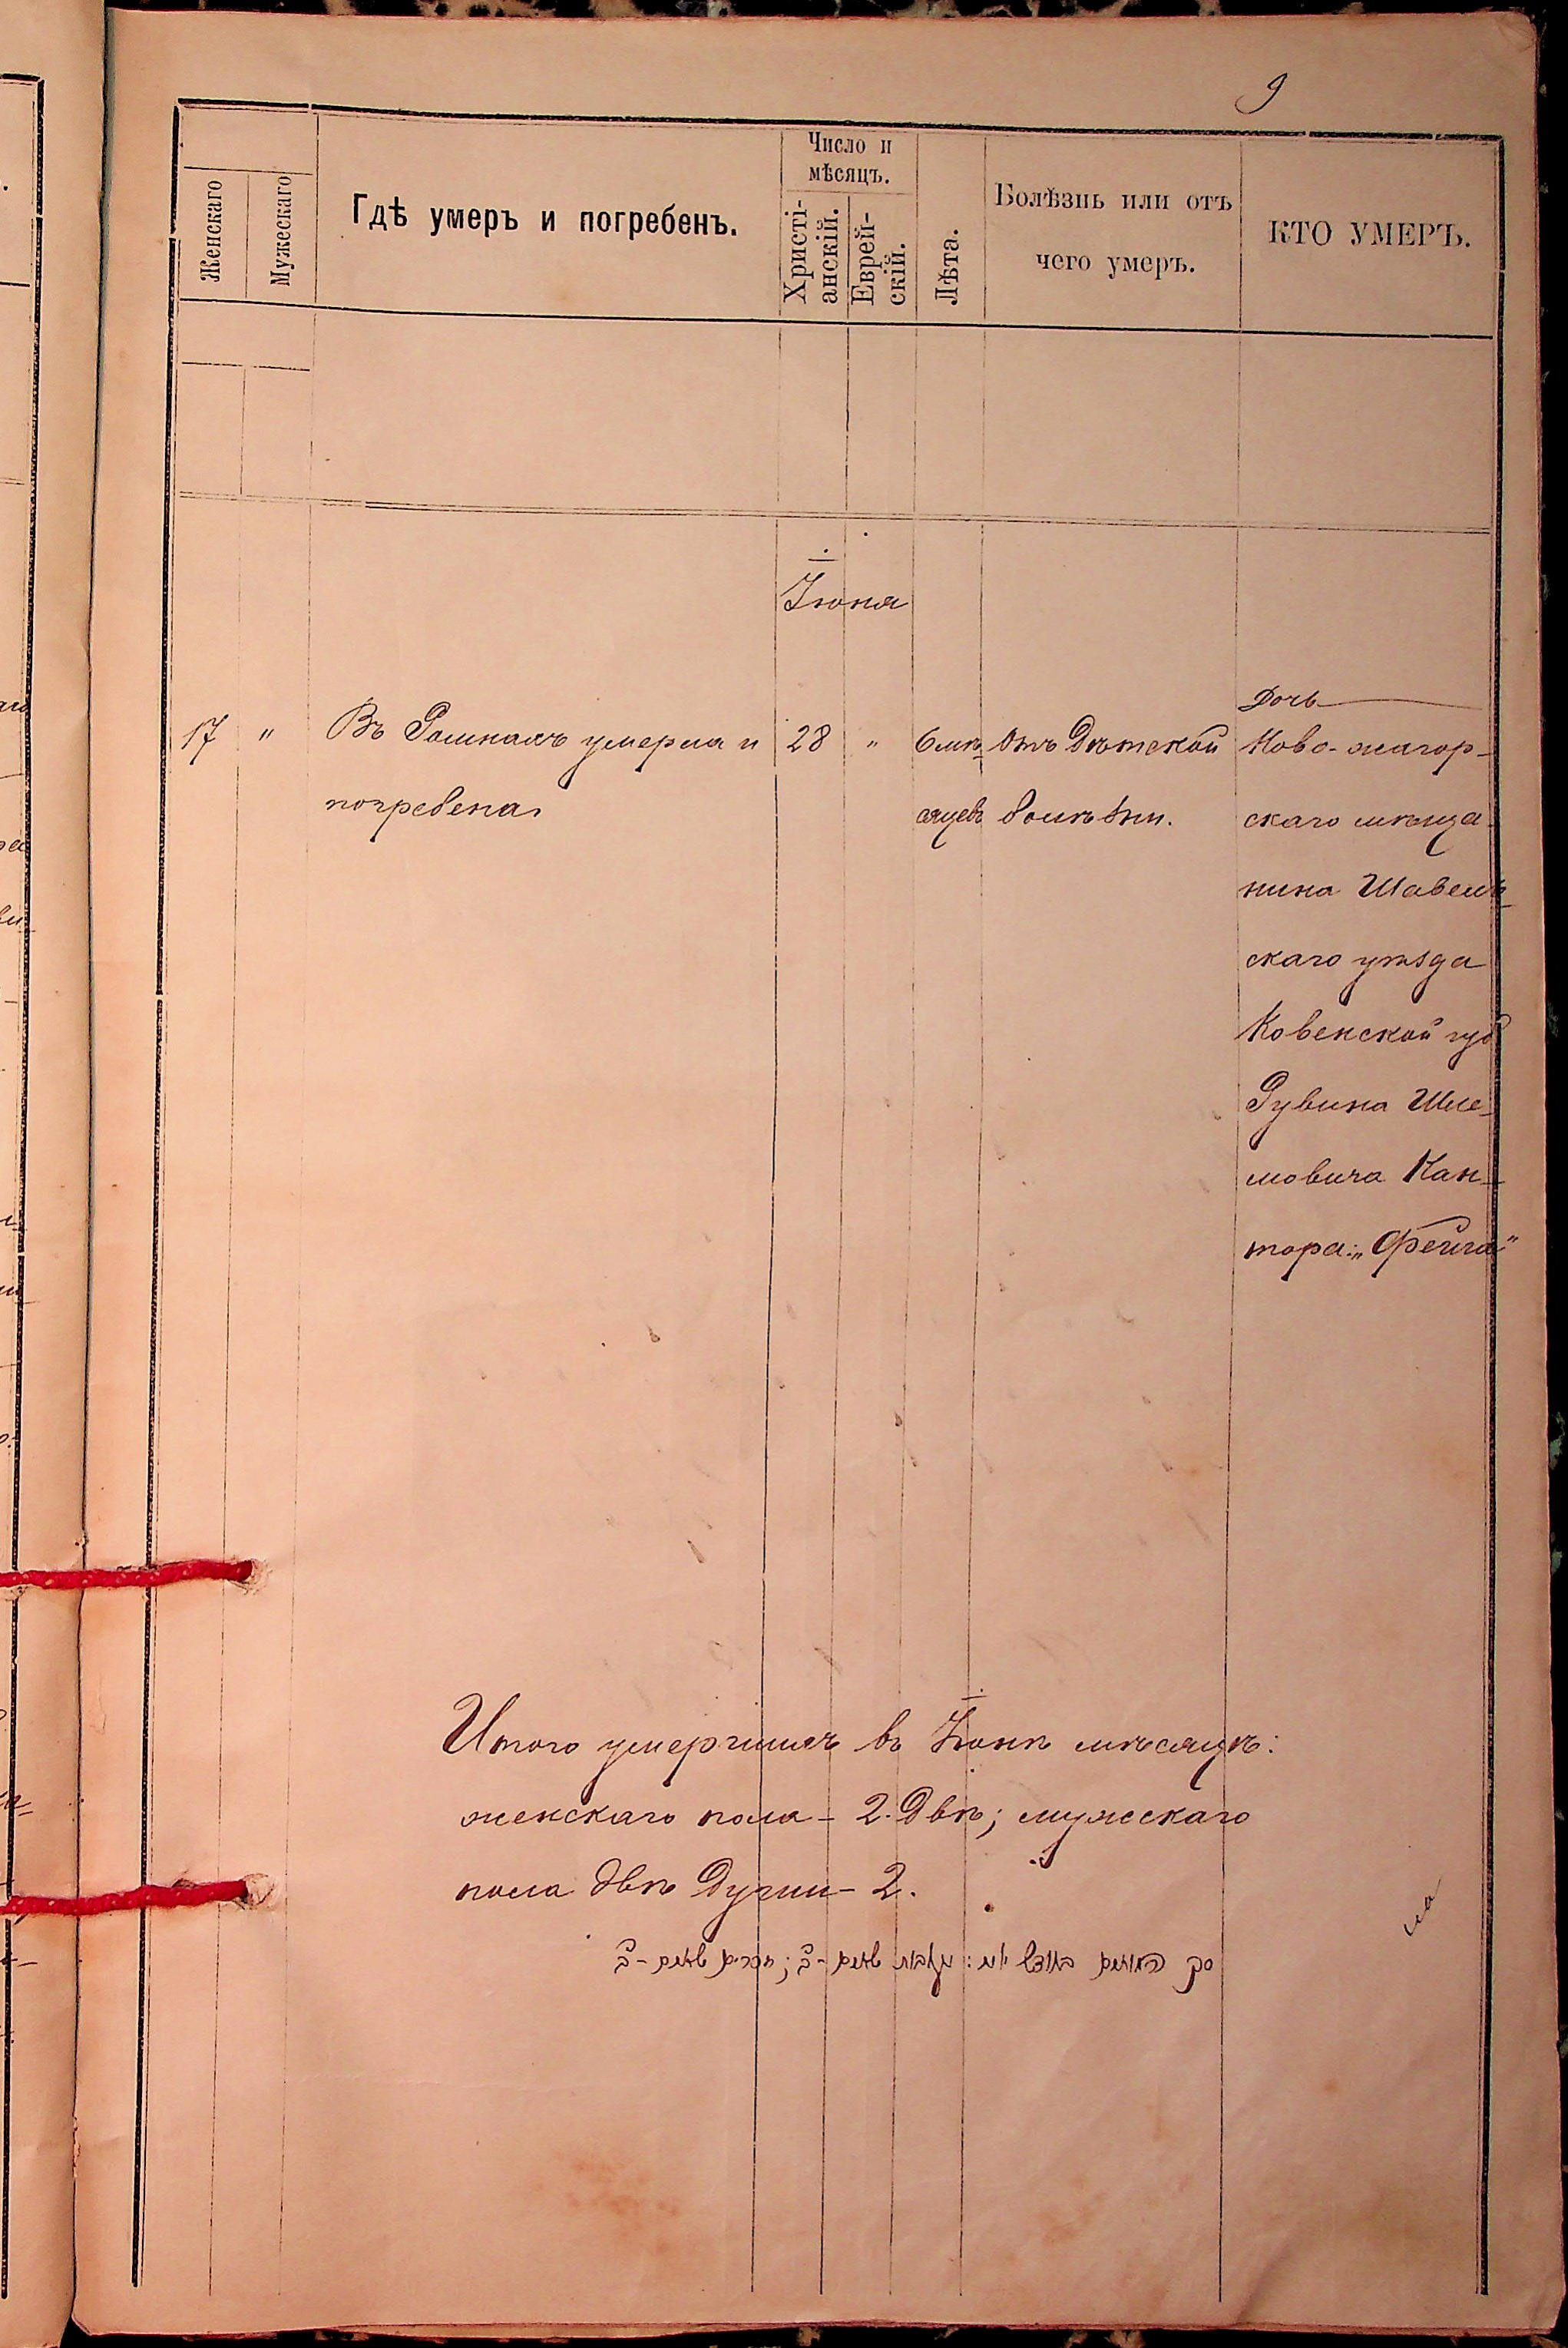 9
Женскаго
Мужескаго
Гдѣ умеръ и погребенъ.
Число и
мѣсяцъ.
Христі-
анскій.
Еврей-
скій.
Лѣта.
Болѣзнь или отъ
чего умеръ.
КТО УМЕРЪ.
Іюня
17 " Въ Ромнахъ умерла и
погребена
28 "
6 мѣ-
сяцевъ
Отъ Дѣтской
болѣзни.
Дочь
Ново-жагор-
скаго мѣща-
нина Шавель-
скаго уѣзда
Ковенской губ
Рувина Шле-
мовича Кан-
тора: "Фейга"
Итого умершихъ въ Іюнѣ мѣсяцѣ:
женскаго пола - 2. Двѣ; мужескаго
пола двѣ Души - 2.